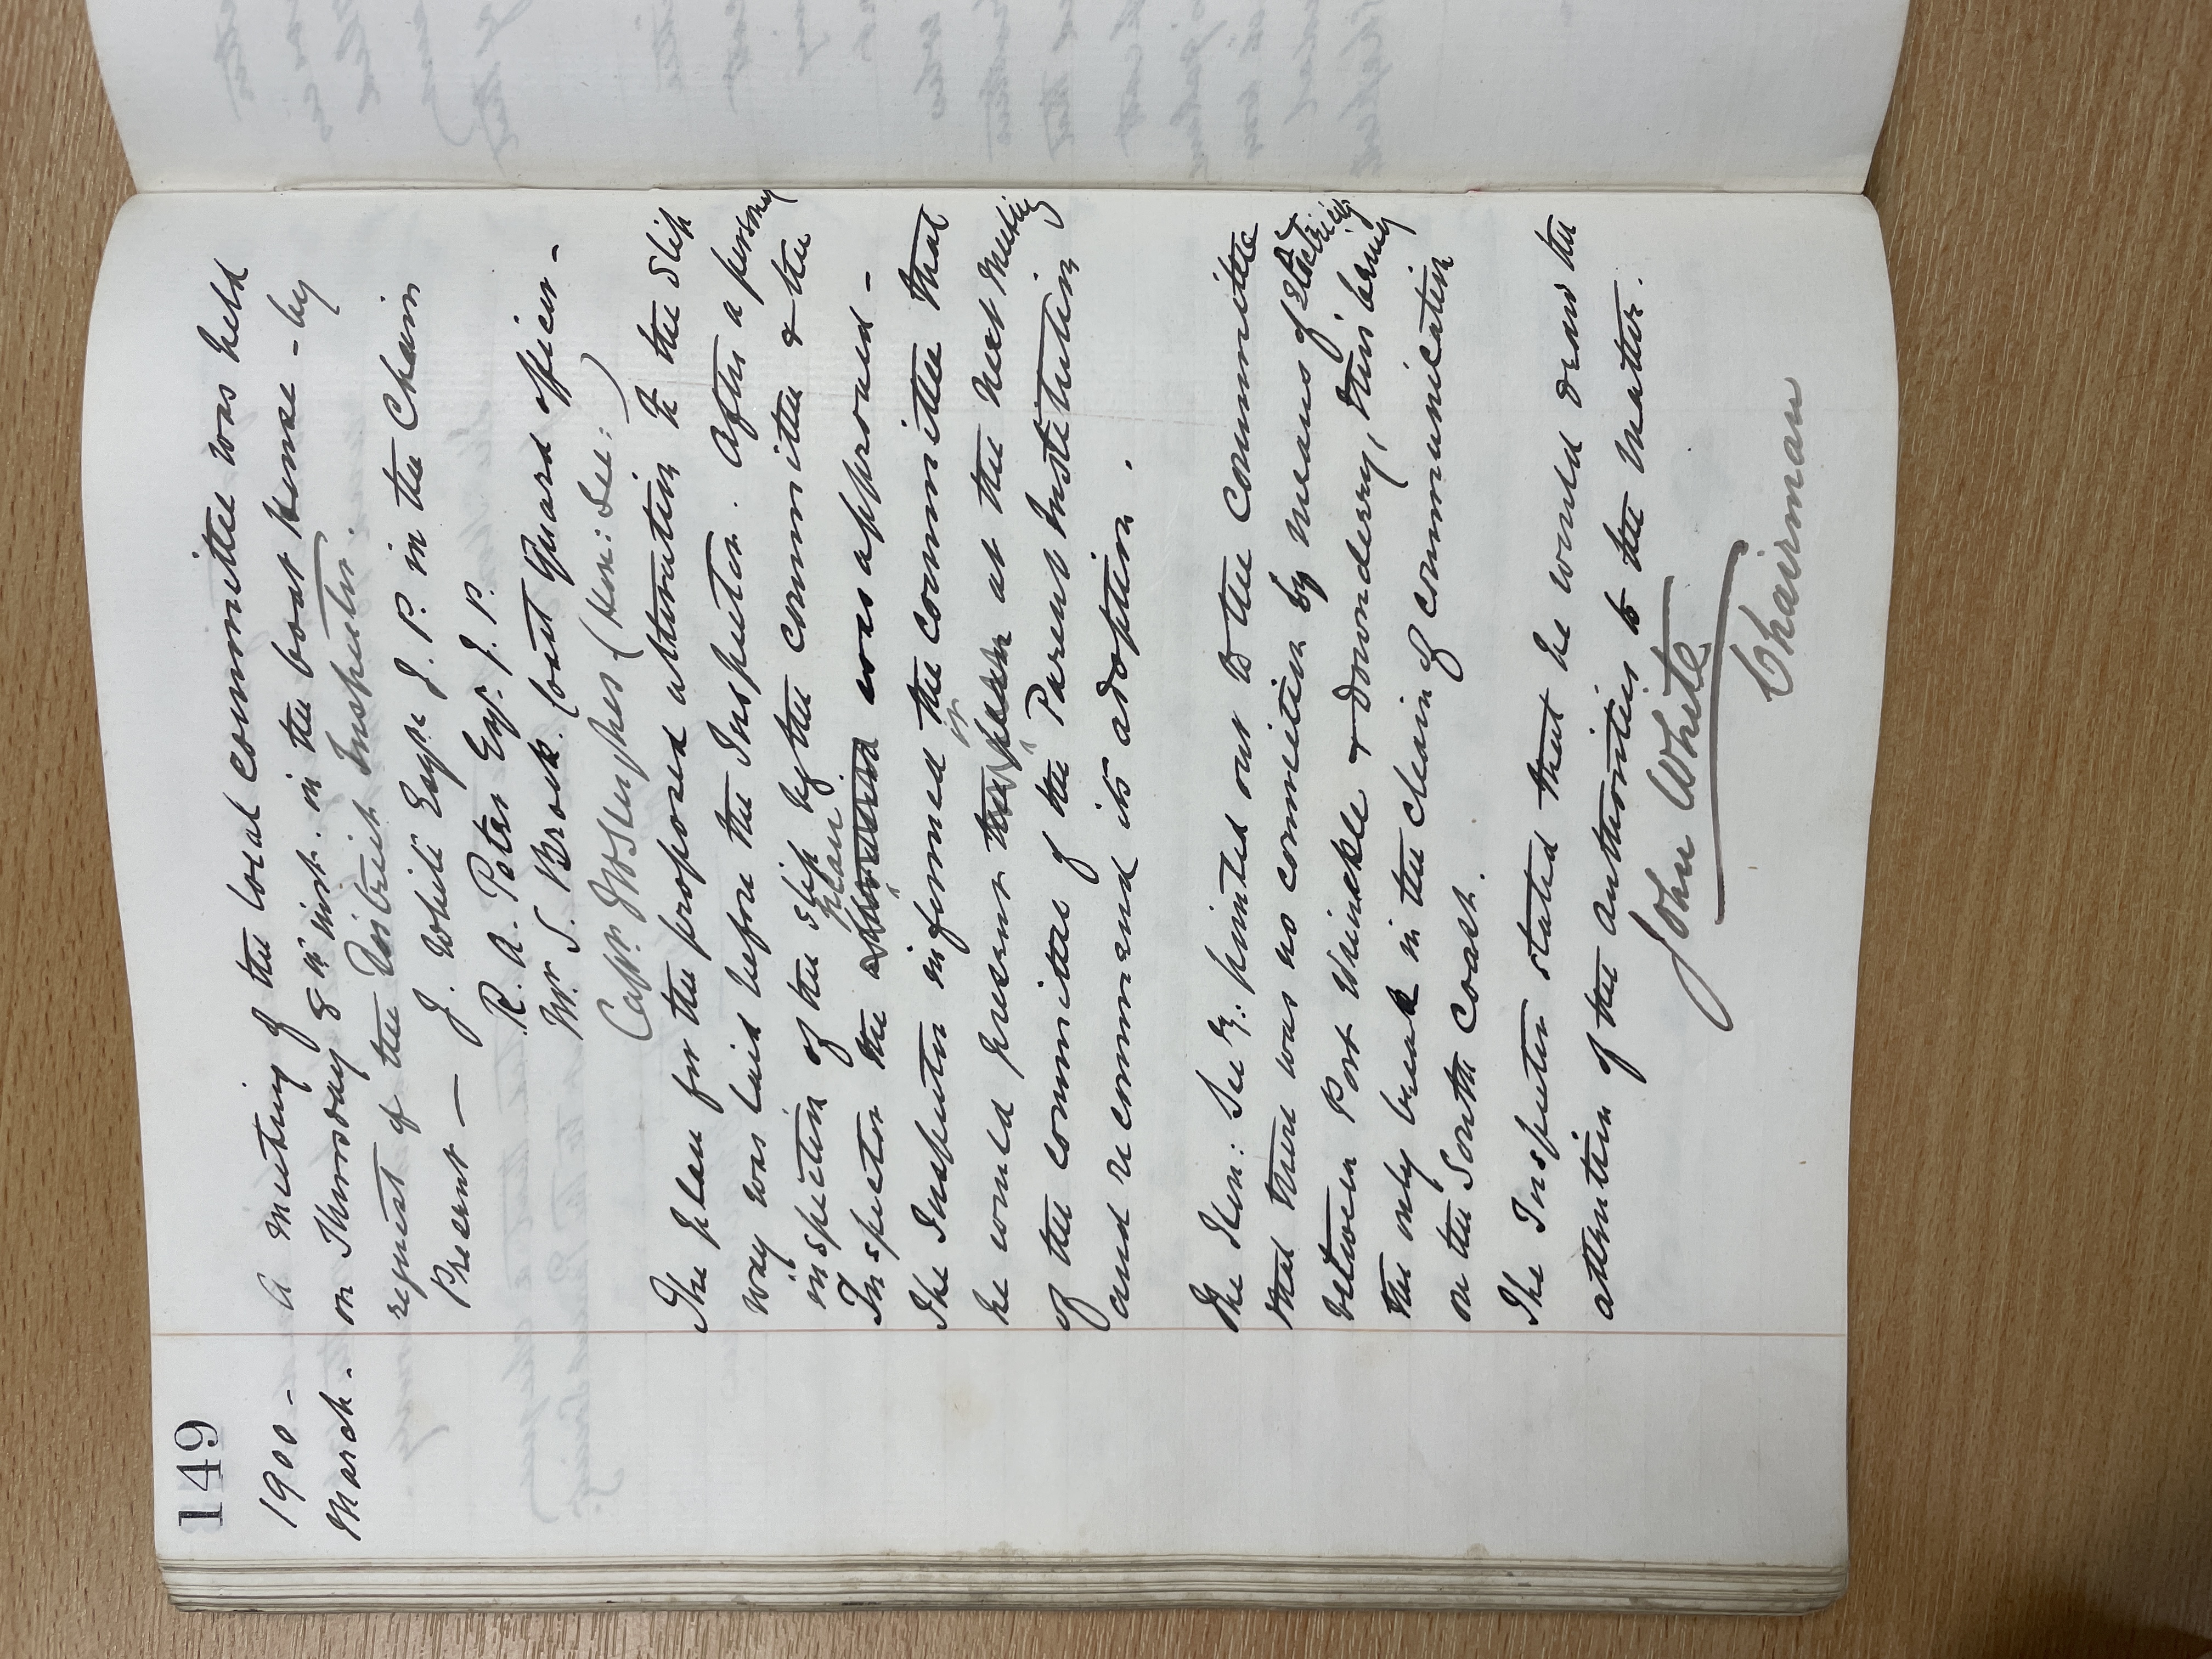 149
1900 -
March.
A meeting of the local committee was held
on Thursday 8th inst. in the boat house - by
request of the District Inspector.
Present —
J. White Esqr. J. P. in the Chair
R. A. Peter Esqr. J. P.
Mr. S. Brock. Coast Guard officer -
Captn. (Hon: Sec:)
The plan for the proposed alteration to the slip
way was laid before the Inspector. After a personal
inspection of the slip by the committee & the
plan
Inspector the was approved -
The Inspector informed the committee that
it
he would present at the next meeting
of the committee of the Parent Institution
and recommend its adoption.
The Hon: Secy: pointed out to the Committee
that there was no connection by means of Electricity
between Port Wrinkle & Downderry, this being
the only break in the chain of communication
on the South Coast.
The Inspector stated that he would draw the
attention of the authorities to the matter.
John White
Chairman